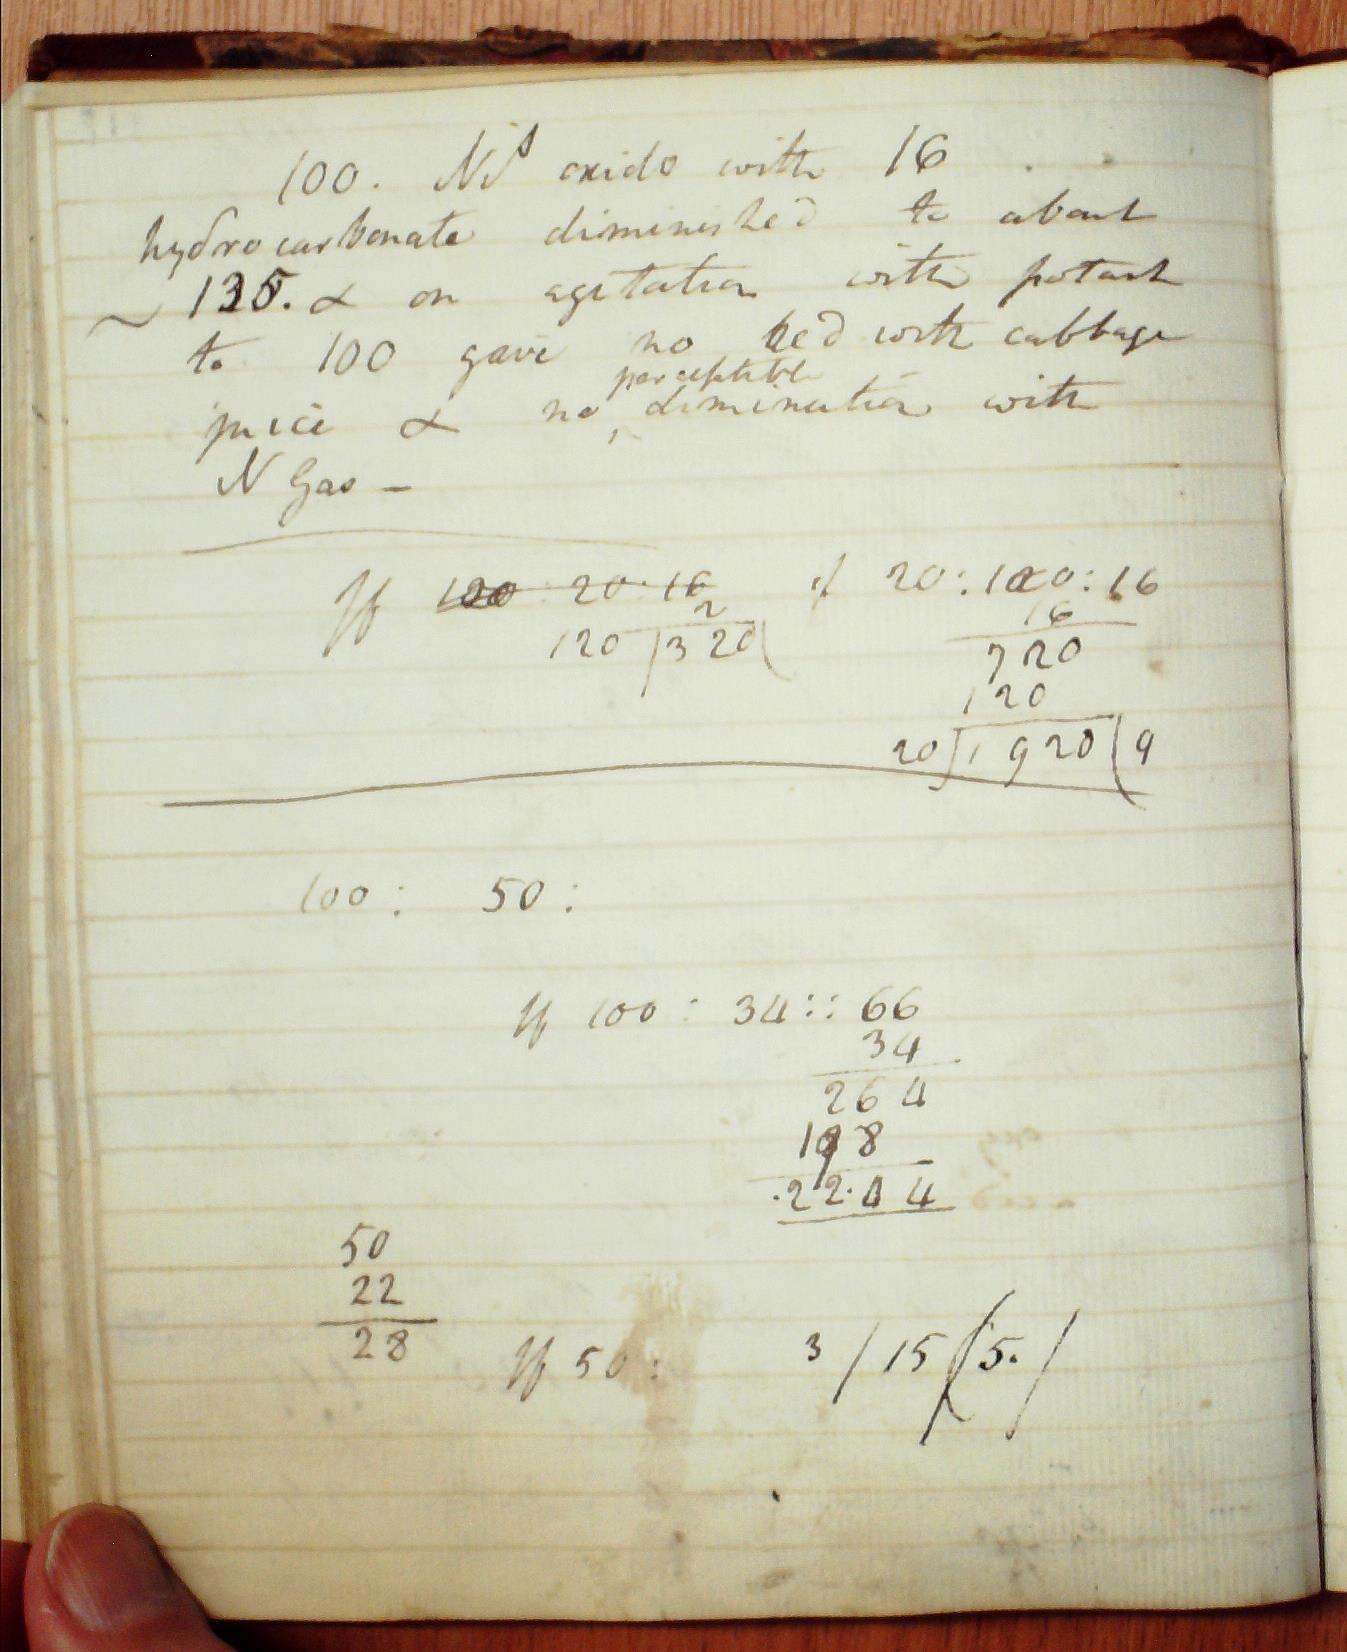 100. Ns oxide with 16
hydrocarbonate diminished to about
~ 135. & on agitation with potash
to 100 gave no red with cabbage
perceptible
juice & no, diminution with
N Gas –
If 120 : 20 : 16 if 20 : 120 : 16
2 16
120 / 320 ( 720
120
20 / 1920 ( 9
100 : 50 :
If 100 : 34 :: 66
34
264
198
.22.44
50
22
28
If 50 : 3 / 15 ( 5. /